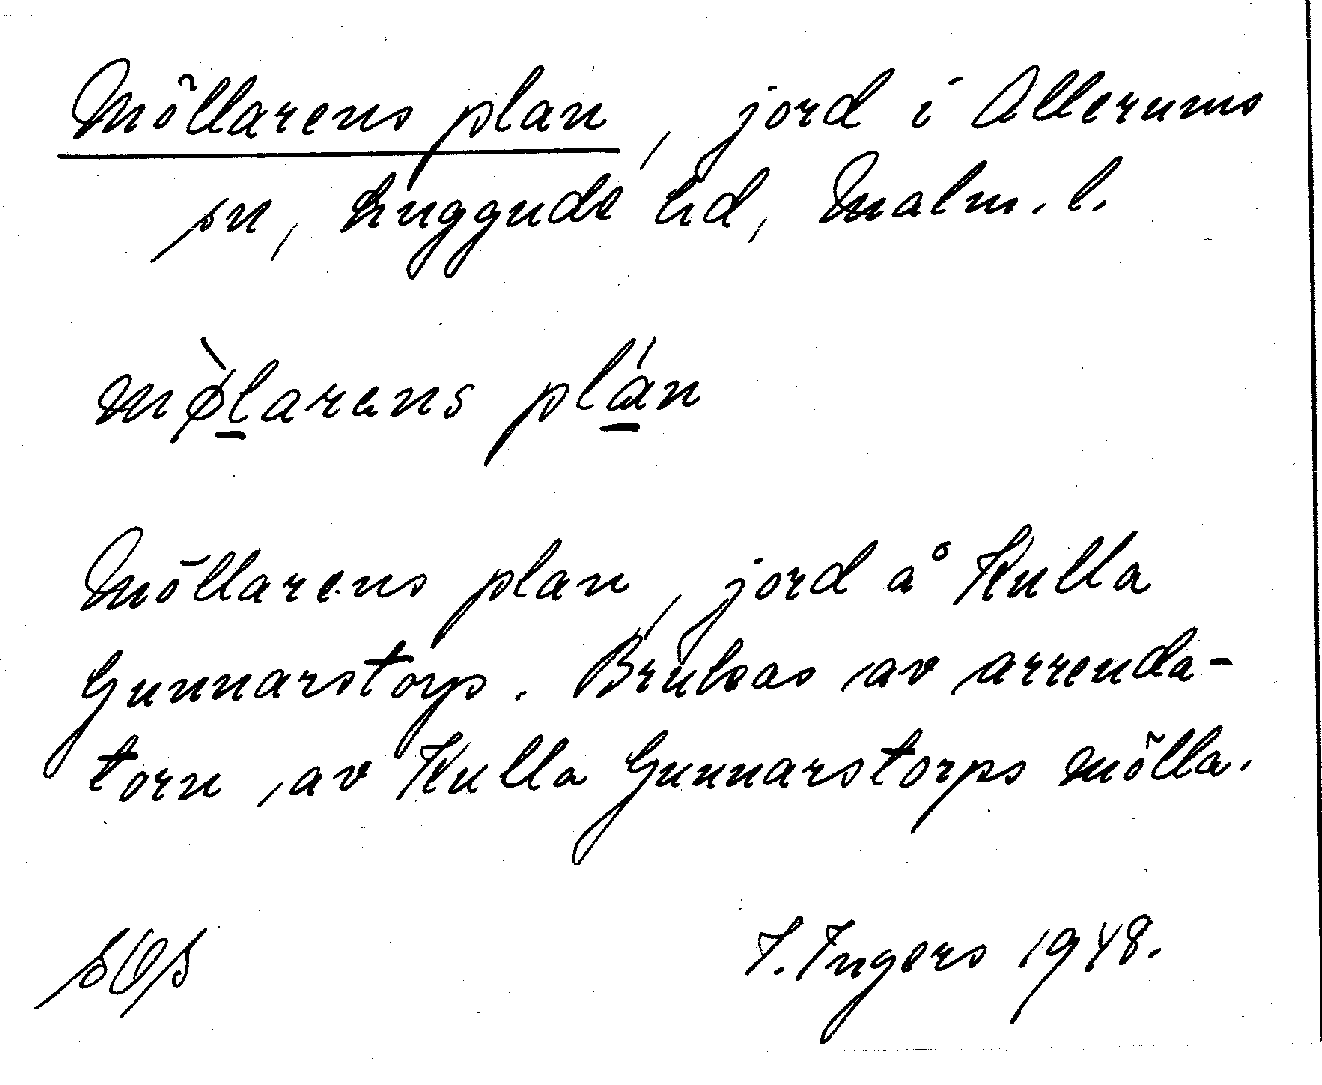 Möllarens plan, jord i Allerums
sn, Luggude hd, Malm. l.
mø̀larens plán
Möllarens plan, jord å Kulla
Gunnarstorp. Brukas av arrenda-
torn av Kulla Gunnarstorps mölla.
I. Ingers 1948.